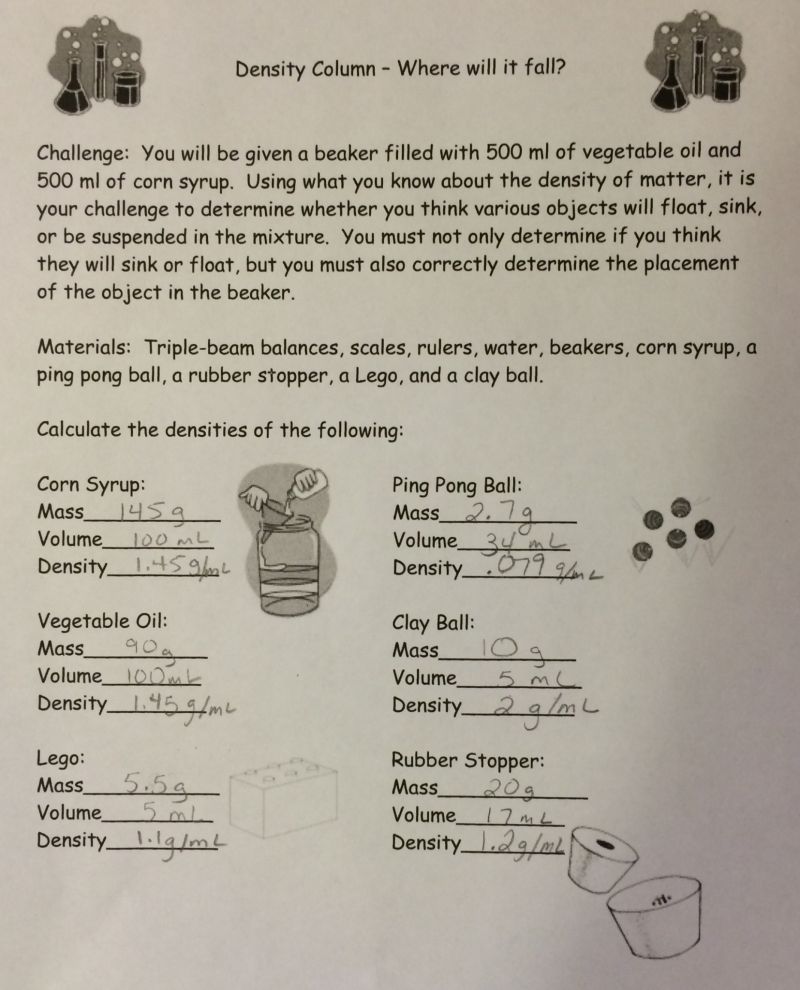 Density Column - Where will it fall?
Challenge: You will be given a beaker filled with 500 ml of vegetable oil and
500 ml of corn syrup. Using what you know about the density of matter, it is
your challenge to determine whether you think various objects will float, sink,
or be suspended in the mixture. You must not only determine if you think
they will sink or float, but you must also correctly determine the placement
of the object in the beaker.
Materials: Triple-beam balances, scales, rulers, water, beakers, corn syrup, a
ping pong ball, a rubber stopper, a Lego, and a clay ball.
Calculate the densities of the following:
Corn Syrup:
Mass 145 g
Volume 100 mL
Density 1.45 g/mL
Ping Pong Ball:
Mass 2.7 g
Volume 34 mL
Density .079 g/mL
Vegetable Oil:
Mass 90 g
Volume 100 mL
Density 1.45 g/mL
Clay Ball:
Mass 10 g
Volume 5 mL
Density 2 g/mL
Lego:
Mass 5.5 g
Volume 5 mL
Density 1.1 g/mL
Rubber Stopper:
Mass 20 g
Volume 17 mL
Density 1.2 g/mL